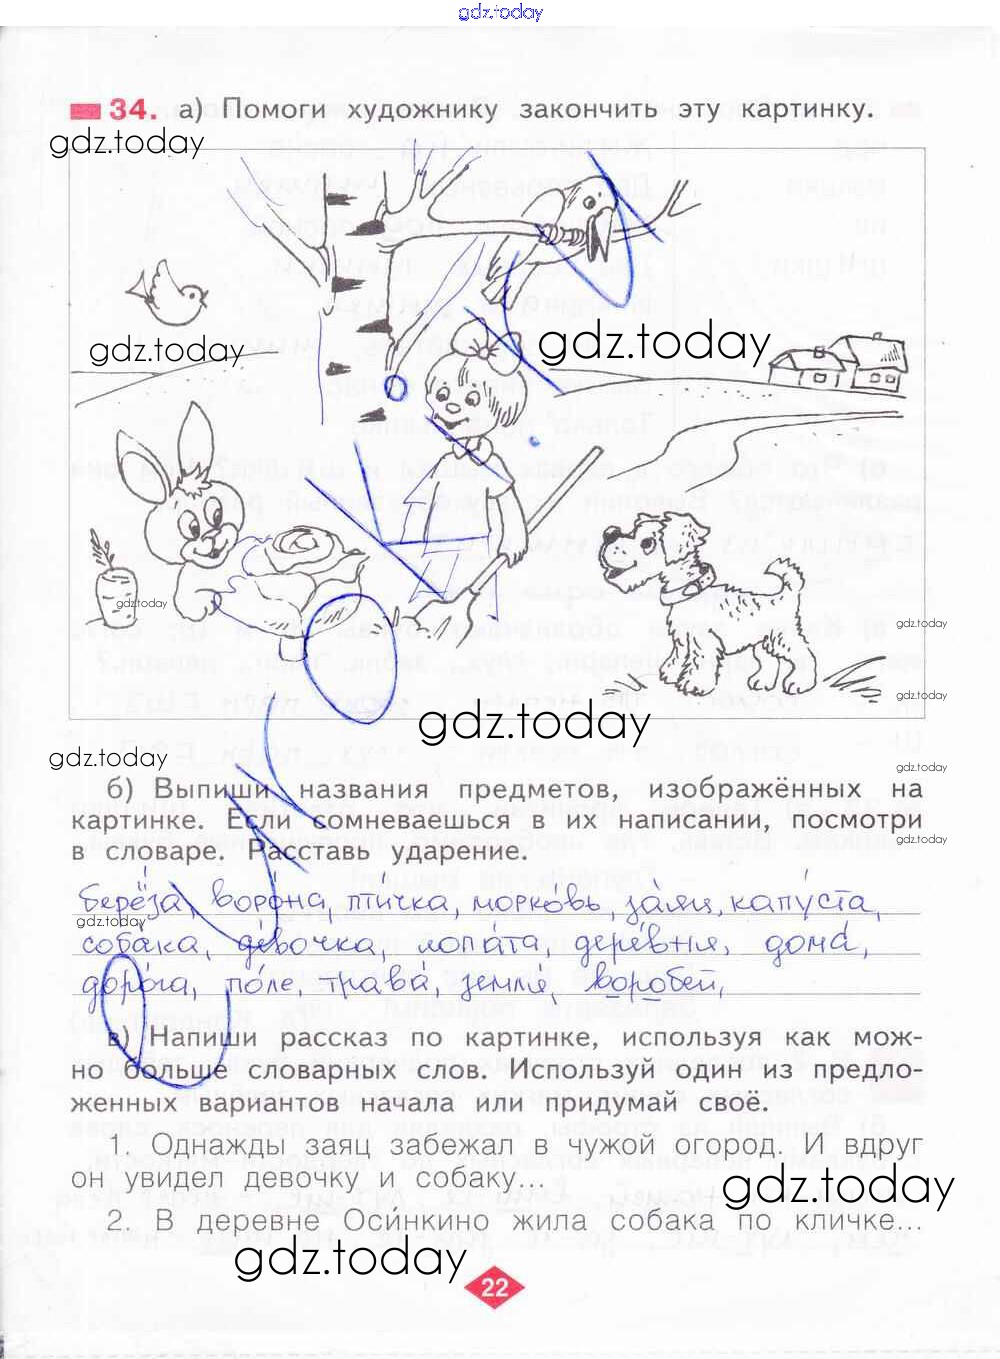 gdz.today
34. а) Помоги художнику закончить эту картинку.
gdz.today
gdz.today
gdz.today
gdz.today
gdz.today
gdz.today
gdz.today
gdz.today
gdz.today
б) Выпиши названия предметов, изображённых на
картинке. Если сомневаешься в их написании, посмотри
gdz.today
в словаре. Расставь ударение.
берёза, воро́на, пти́чка, морко́вь, за́яц, капу́ста,
gdz.today
соба́ка, де́вочка, лопа́та, дере́вня, дома́,
доро́га, по́ле, трава́, земля́, воробе́й,
в) Напиши рассказ по картинке, используя как мож-
но больше словарных слов. Используй один из предло-
женных вариантов начала или придумай своё.
1. Однажды заяц забежал в чужой огород. И вдруг
он увидел девочку и собаку...
gdz.today
2. В деревне Оси́нкино жила собака по кличке...
gdz.today
22